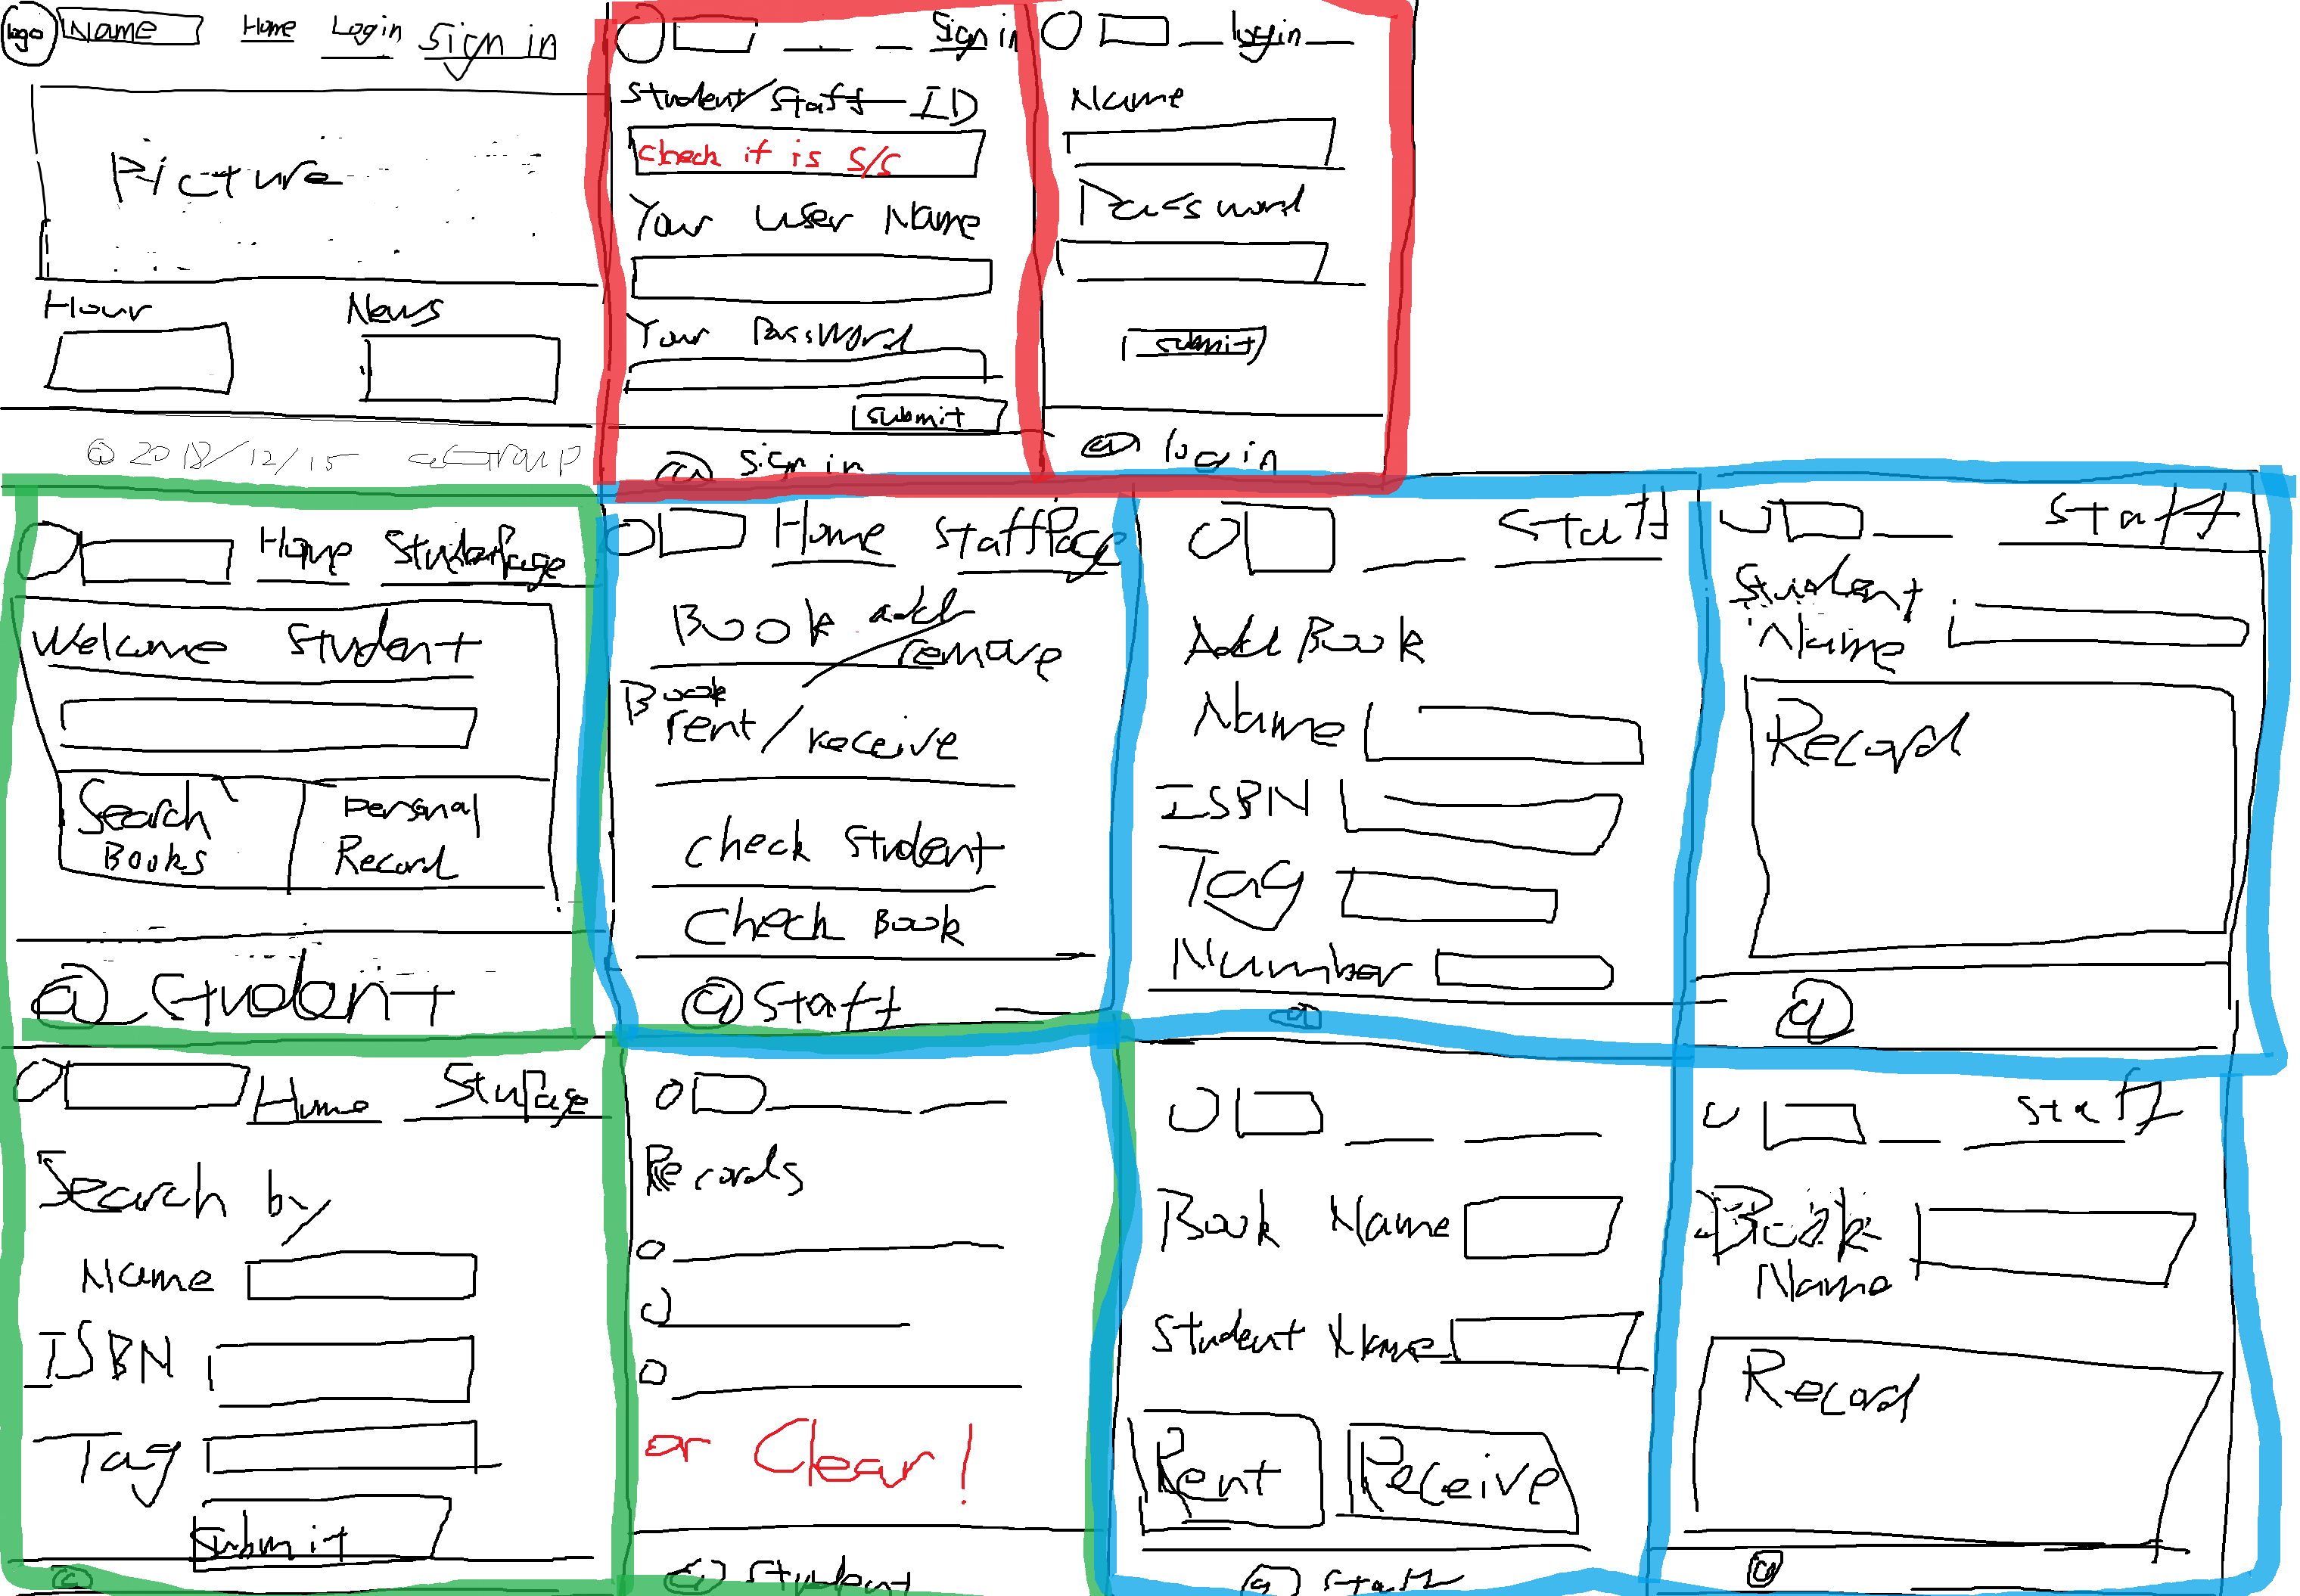 logo Name Home Login Sign in
Picture
Hour News
@ 2018/12/15
Sign in
Student/Staff ID
check if is S/S
Your User Name
Your PassWord
submit
@ sign in
login
Name
Password
submit
@ login
Home
Welcome Student
Search Books
Personal Record
@ Student
Home StaffPage
Book add remove
Book rent/receive
check student
check Book
@ Staff
Staff
Add Book
Name
ISBN
Tag
Number
@
Staff
Student Name
Record
@
Home StuPage
Search by
Name
ISBN
Tag
Submit
@
Records
or Clear!
@ Student
Book Name
Student Name
Rent Receive
@ Staff
Staff
Book Name
Record
@